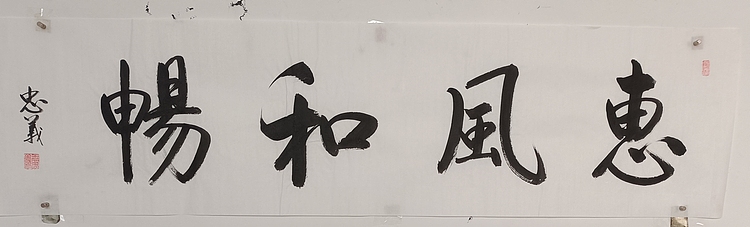 惠風和暢
忠義